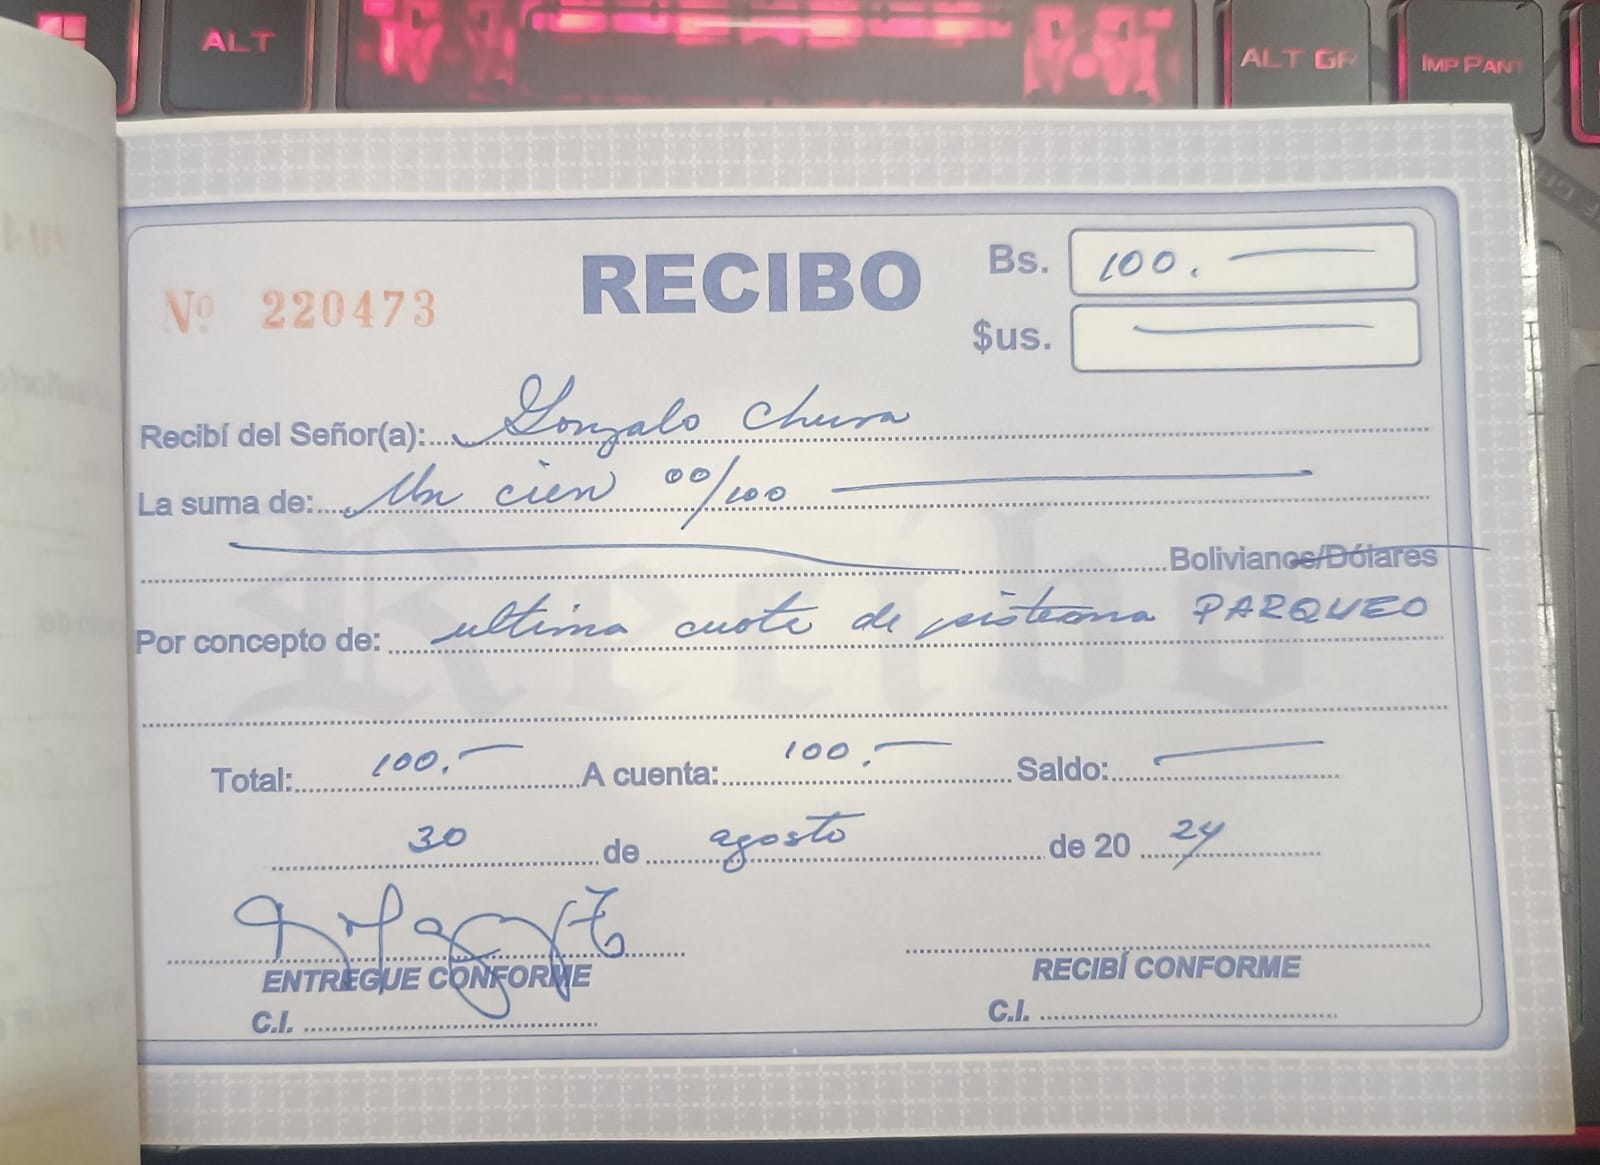 ALT
ALT GR
IMP PANT
Nº 220473
RECIBO
Bs. 100.
$us.
Recibí del Señor(a): Gonzalo Chura
La suma de: Un cien 00/100
Bolivianos/Dólares
Por concepto de: ultima cuota de sistema PARQUEO
Recibo
Total: 100.- A cuenta: 100.- Saldo:
30 de agosto de 20 24
ENTREGUE CONFORME
RECIBÍ CONFORME
C.I.
C.I.